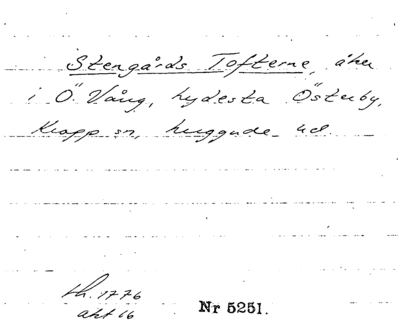 Stengårds Tofterne, åker
i Ö. Vång, hydesta Österby,
Kropp sn, Luggude hd.
th. 1776
akt 16
Nr 5251.